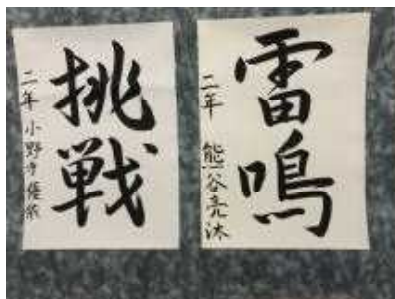 雷鳴
二年 熊谷亮沐
挑戦
二年 小野寺